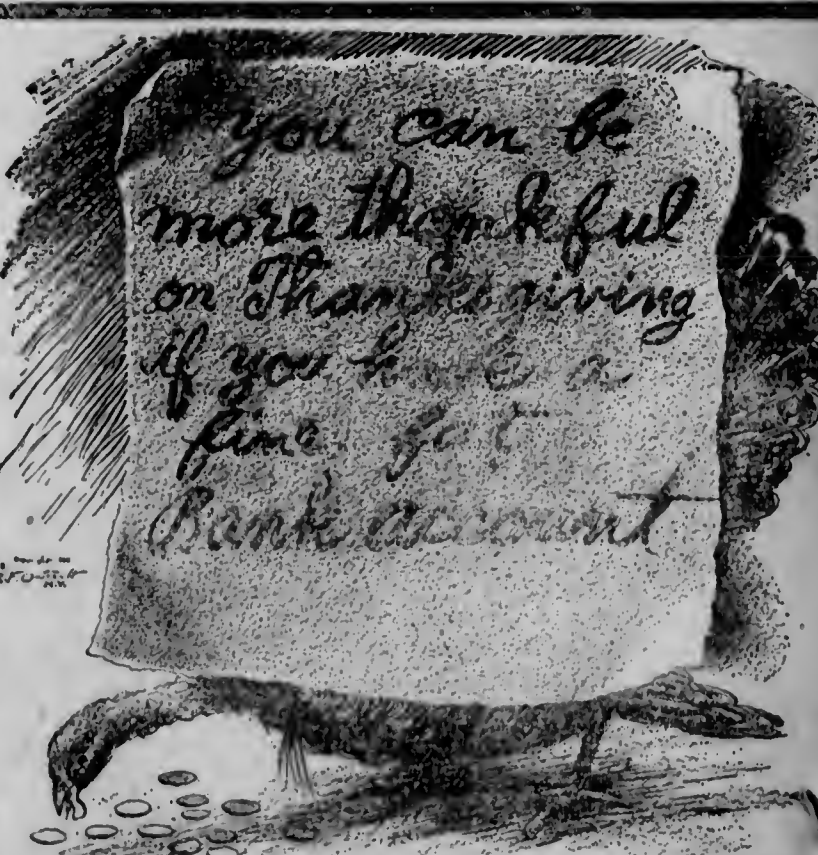 you can be
more thankful
on Thanksgiving
if you have a
fine fat
Bank account